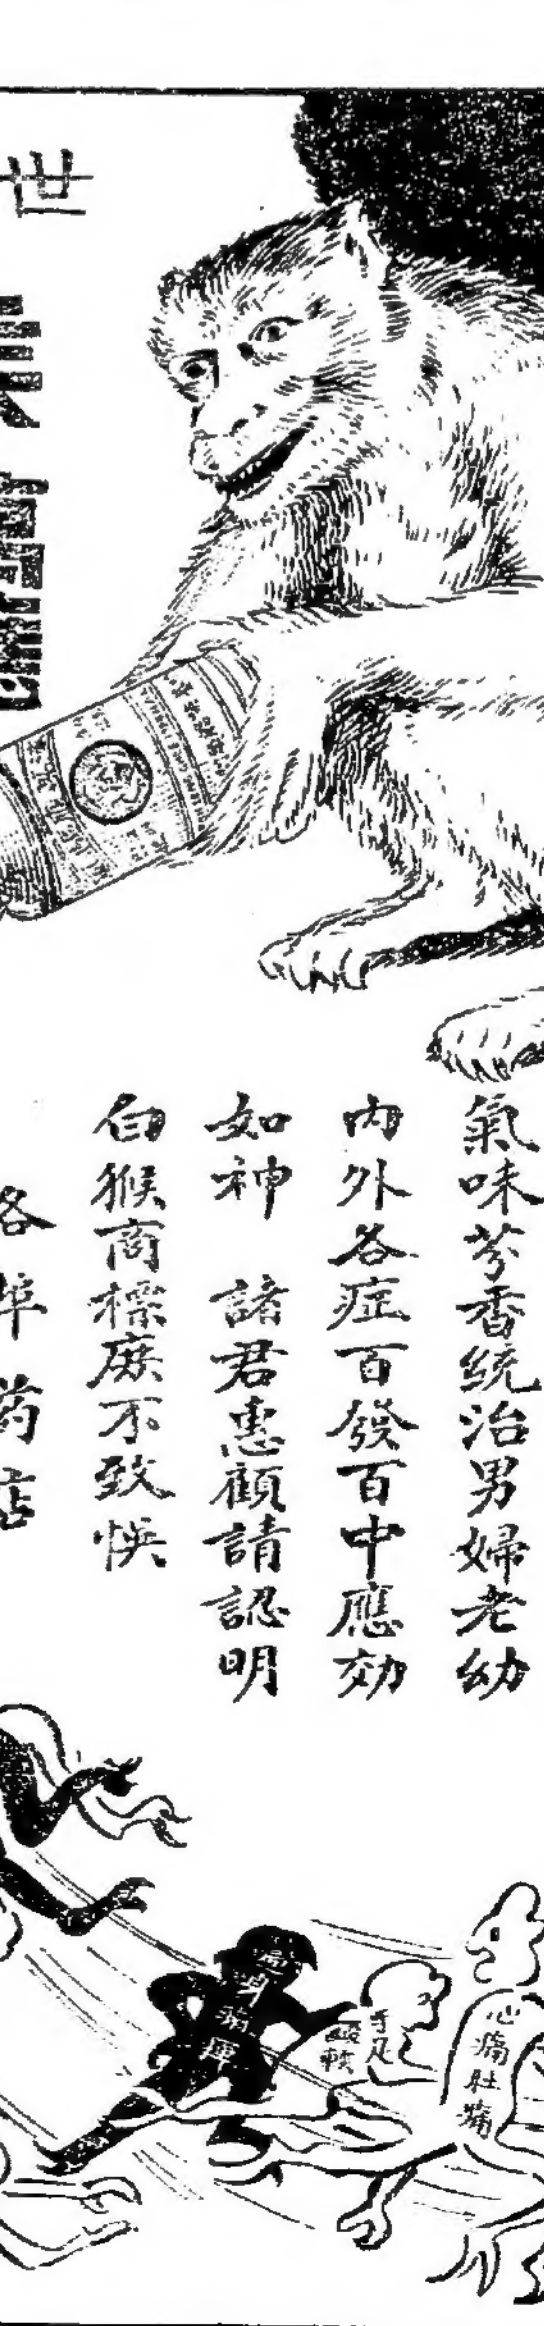 氣味芬香統治男婦老幼
內外各症百發百中應効
如神　諸君惠顧請認明
白猴商標庶不致悞
各埠葯店
世
心痛肚痛
手足
身痛